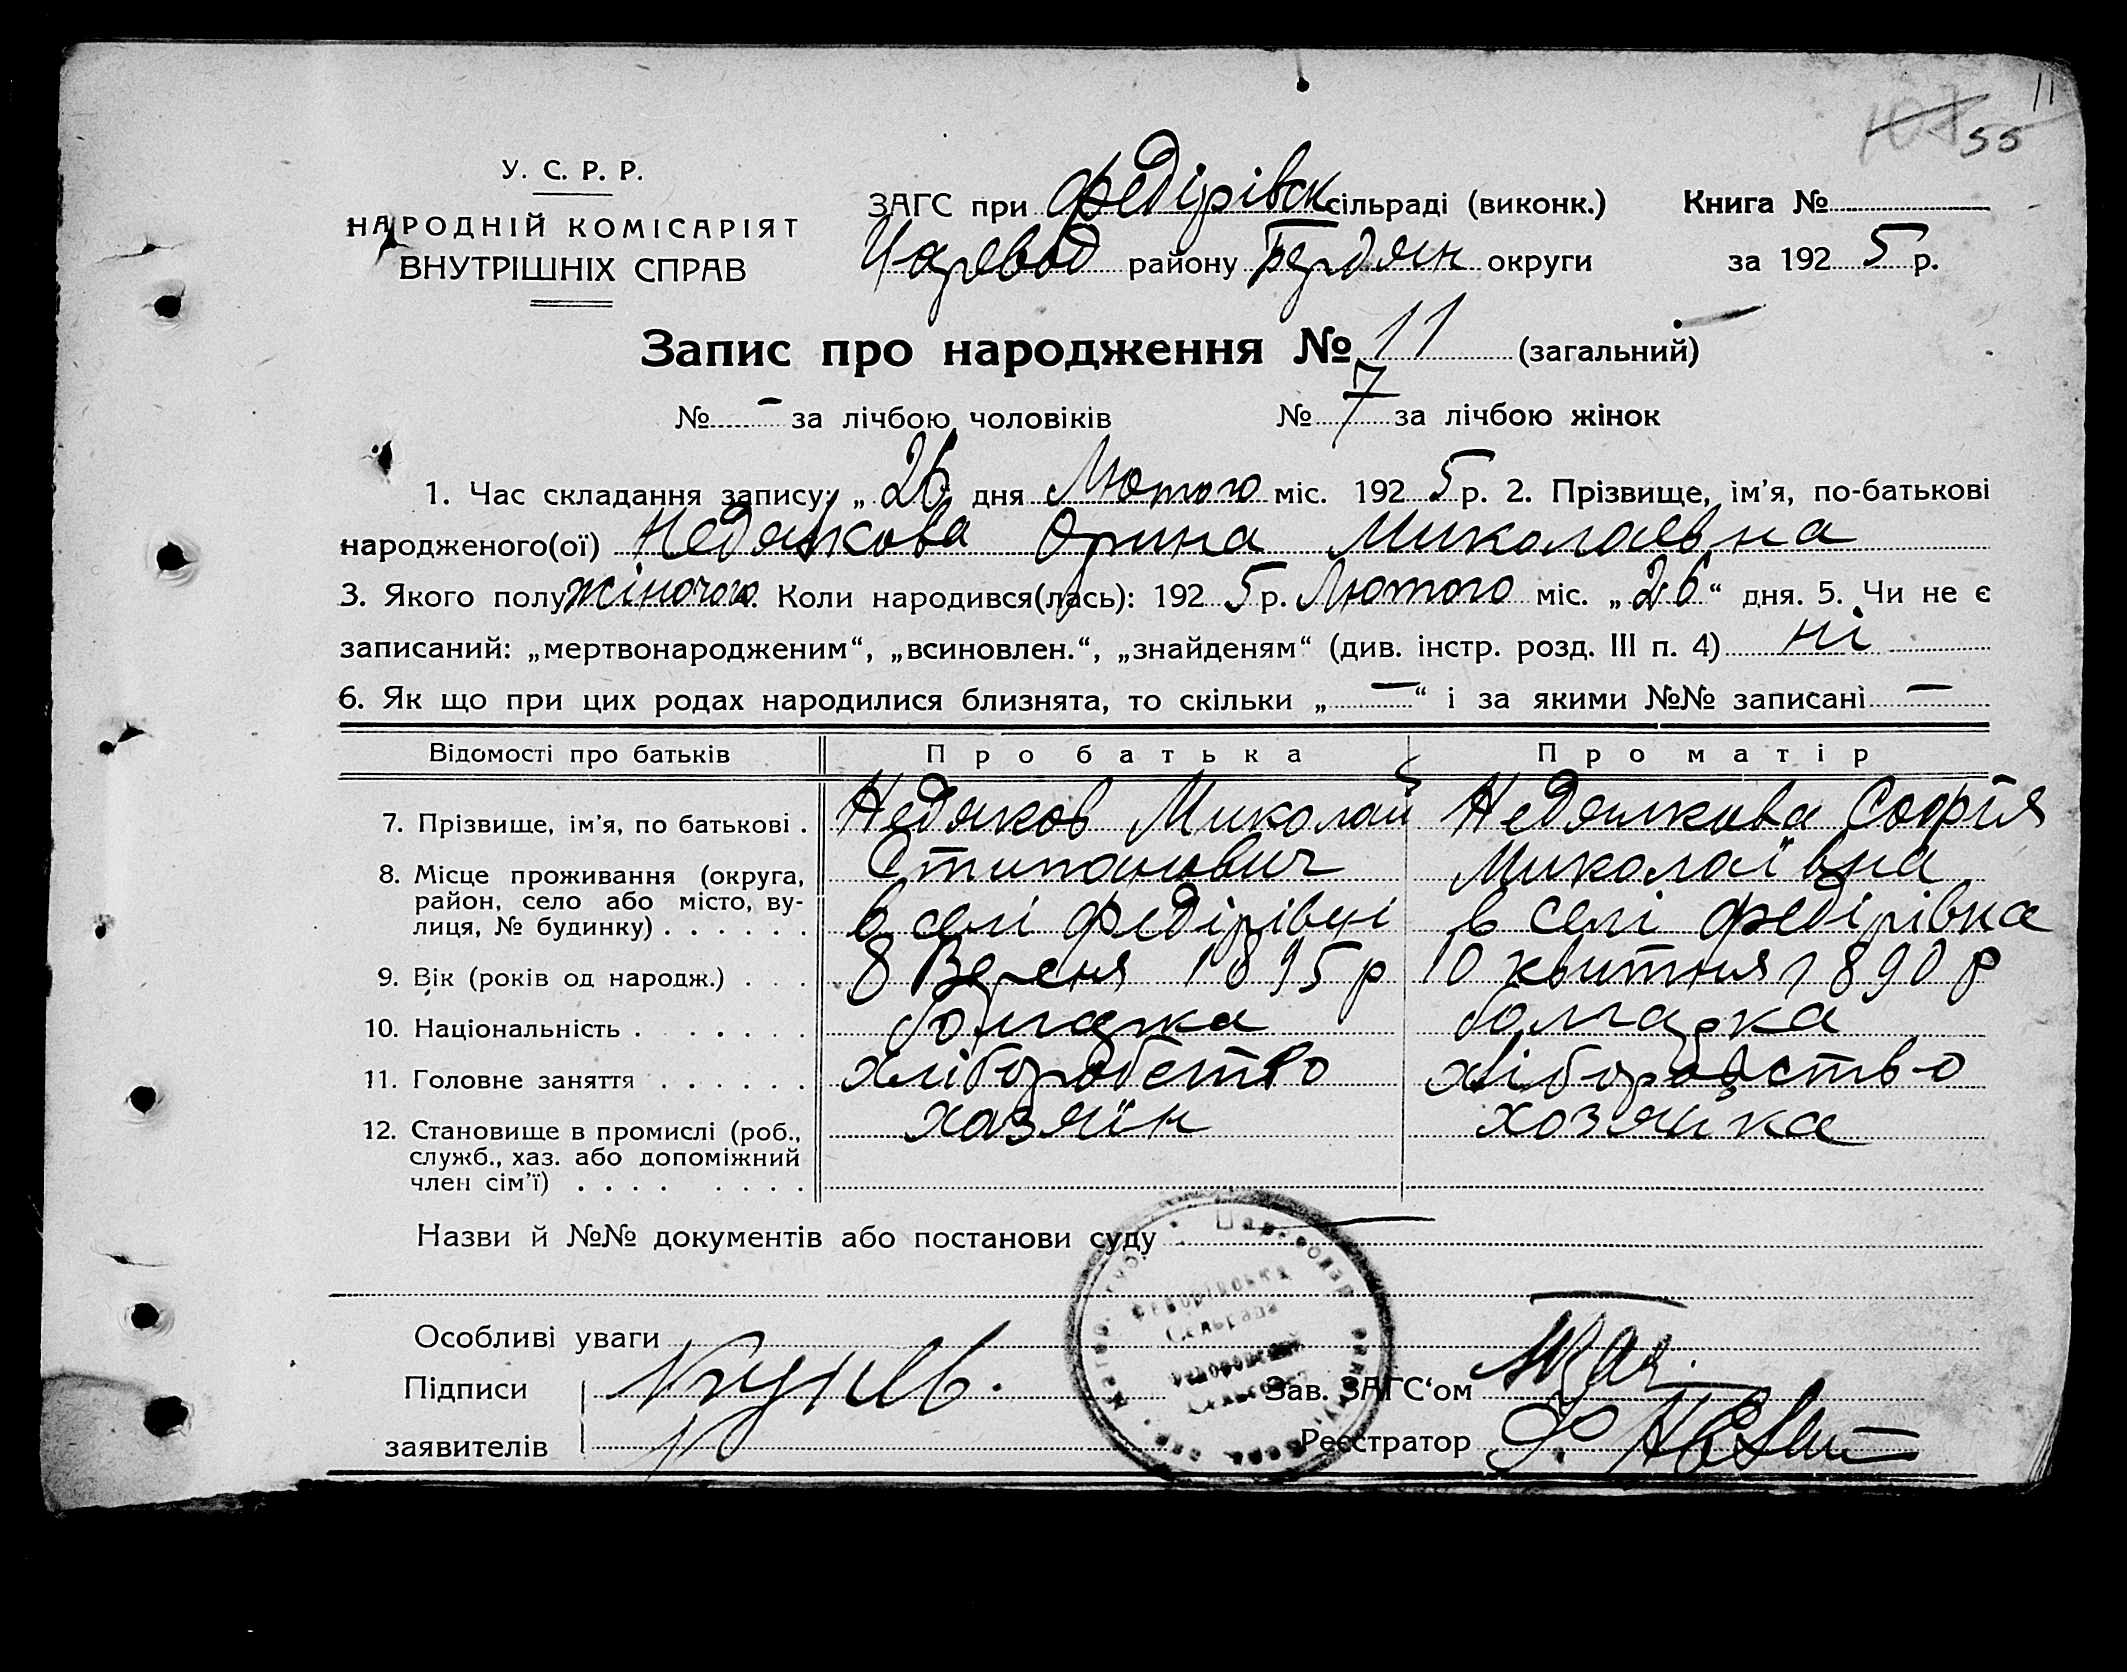 11
107 55
У. С. Р. Р.
НАРОДНІЙ КОМІСАРІЯТ
ВНУТРІШНІХ СПРАВ
ЗАГС при Федірівск сільраді (виконк.) Книга №
Царевод району Бердян округи за 1925 р.
Запис про народження № 11 (загальний)
№ - за лічбою чоловіків № 7 за лічбою жінок
1. Час складання запису: „26 дня Лютого міс. 1925 р. 2. Прізвище, ім'я, по-батькові
народженого(ої) Недялкова Орина Миколаевна
3. Якого полу жіночого. Коли народився(лась): 1925 р. Лютого міс. „26“ дня. 5. Чи не є
записаний: „мертвонародженим“, „всиновлен.“, „знайденям“ (див. інстр. розд. III п. 4) ні
6. Як що при цих родах народилися близнята, то скільки „—“ і за якими №№ записані —
Відомості про батьків Про батька Про матір
7. Прізвище, ім'я, по батькові . Недяков Миколай Недялкова Софія
Стипанович Миколаївна
8. Місце проживання (округа, район, село або місто, вулиця, № будинку) . . . . . . в селі Федірівці в селі Федірівка
9. Вік (років од народж.) . . . 8 Вересня 1895 р 10 квитня 1890 р
10. Національність . . . . . . . болгарка болгарка
11. Головне заняття . . . . . . хліборобство хліборобство
12. Становище в промислі (роб., служб., хаз. або допоміжний член сім'ї) . . . . . . . . хазяїн хозяйка
Назви й №№ документів або постанови суду —
Особливі уваги
Підписи
заявителів
Зав. ЗАГС'ом
Реєстратор